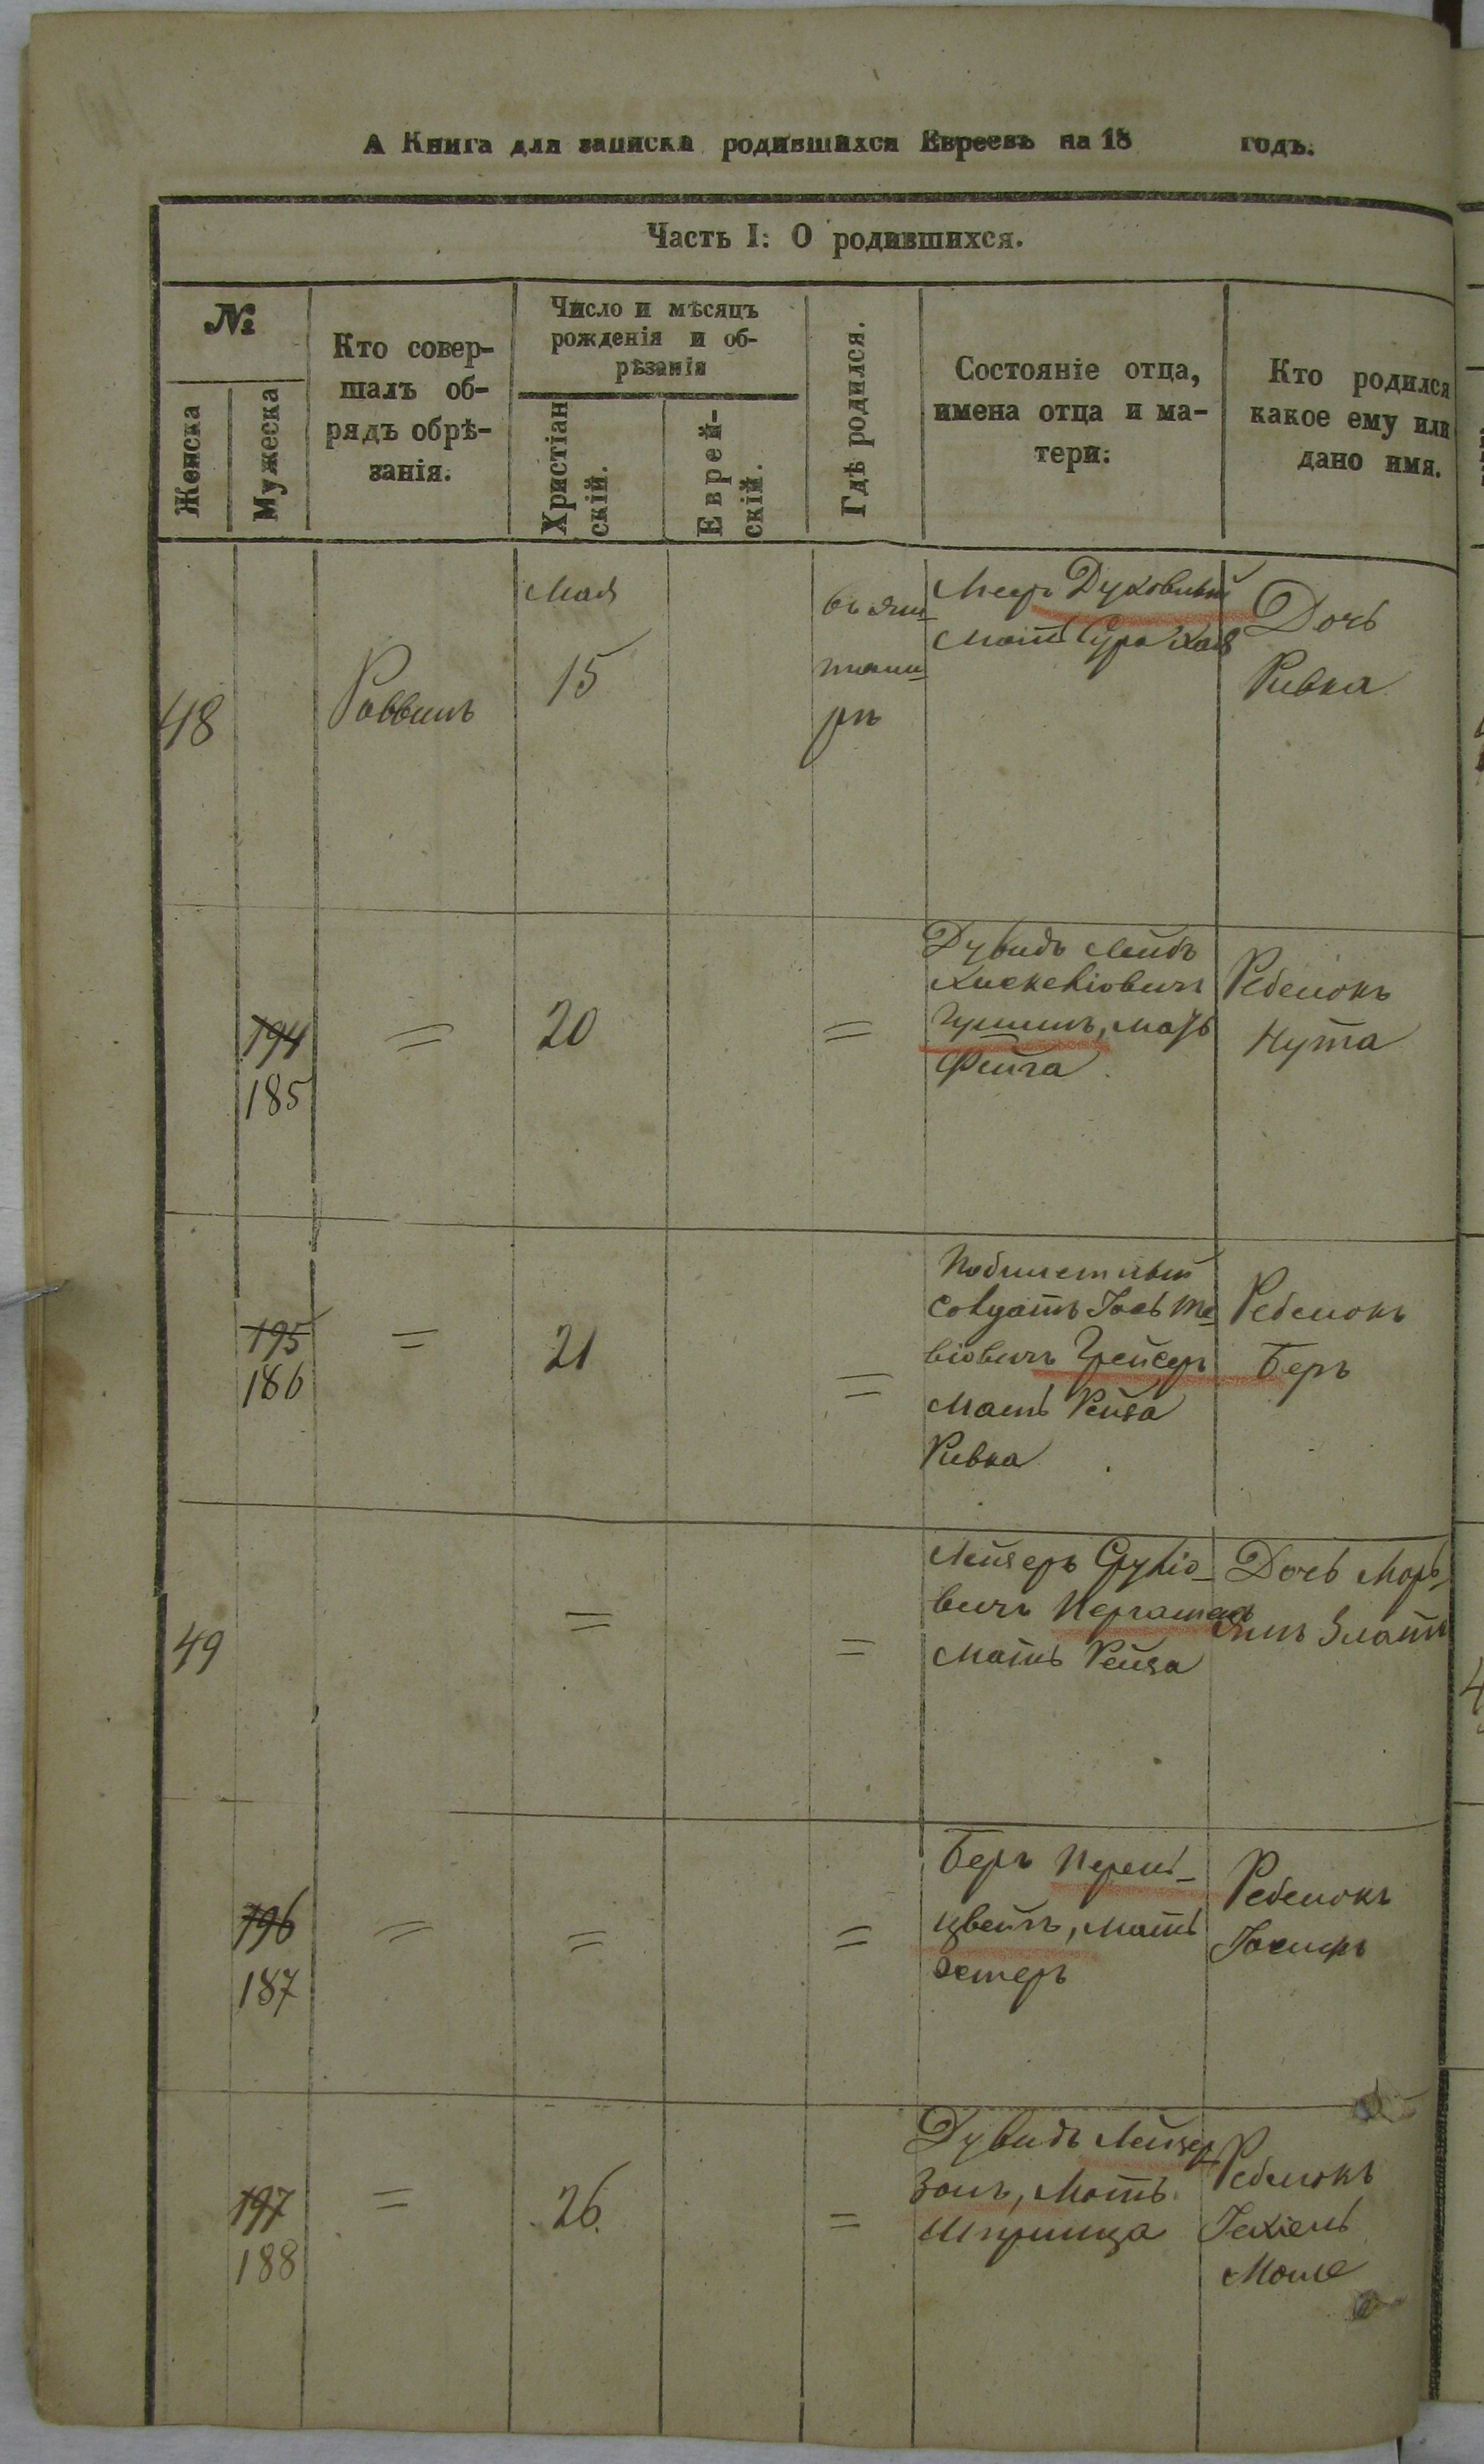 А Книга для записка родившихся Евреевъ на 18 годъ.
Часть I: О родившихся.
№
Женска
Мужеска
Кто совер-
шалъ об-
рядъ обрѣ-
занія.
Число и мѣсяцъ
рожденія и об-
рѣзанія
Христіан
скій.
Еврей-
скій.
Гдѣ родился.
Состояніе отца,
имена отца и ма-
тери:
Кто родился
какое ему или
дано имя.
48
Раввинъ
Мая
15
въ
рѣ
Меер Духовный
Мать Сура Хая
Дочь
Ривка
194
185
=
20
=
Дувидъ Лейбъ
Хискеліовичъ
мать
Фейга
Ребенокъ
Нута
195
186
=
21
=
Подбилетный
Солдатъ Іось Те-
віовичъ Грейсеръ
Мать Рейза
Ривка
Ребенокъ
Беръ
49
=
=
Лейзеръ Сруліо-
вичъ
Мать Рейза
Дочь Марь-
ямъ Злата
196
187
=
=
=
Беръ Перель-
цвейгъ, мать
Эстеръ
Ребенокъ
Іосифъ
197
188
=
26.
=
Дувидъ Лейзер
зонъ, Мать
Шпринца
Ребенокъ
Іехіель
Моше